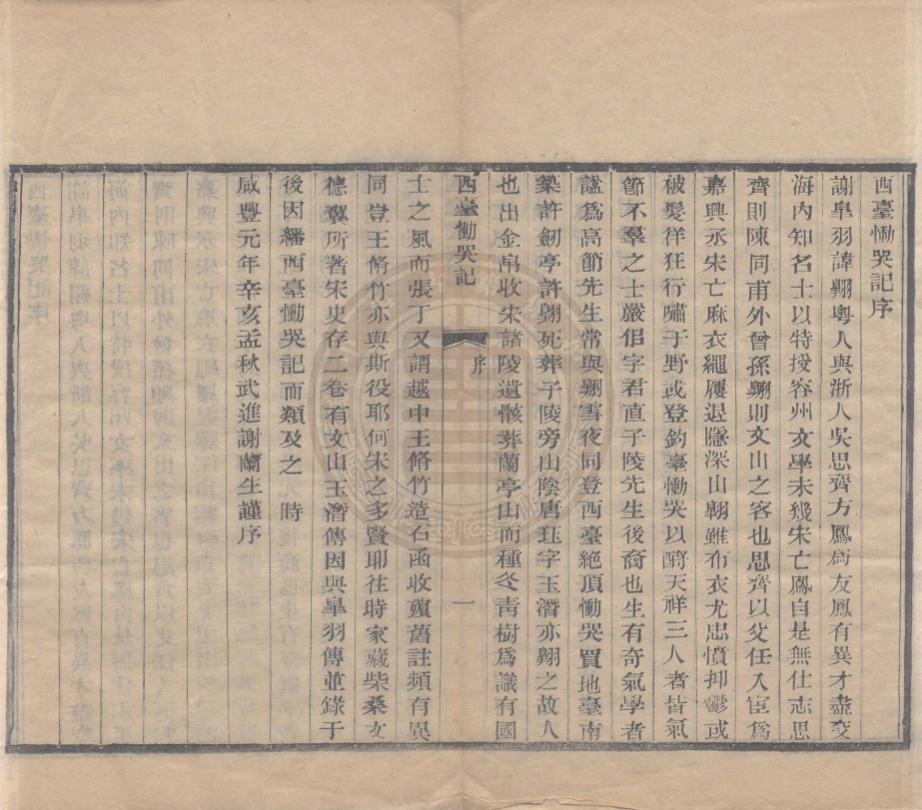 西臺慟哭記序
謝皐羽諱翺粵人與浙人吳思齊方鳳爲友鳳有異才盡交
海内知名士以特授容州文學未幾宋亡鳳自是無仕志思
齊則陳同甫外曾孫翺則文山之客也思齊以父任入宦爲
嘉興丞宋亡麻衣繩屨退隱深山翺雖布衣尤忠憤抑鬱或
被髮徉狂行嘯于野或登釣臺慟哭以酹天祥三人者皆氣
節不羣之士嚴侣字君直子陵先生後裔也生有奇氣學者
諡爲高節先生常與翺雪夜同登西臺絶頂慟哭買地臺南
築許劒亭許翺死葬子陵旁山陰唐珏字玉潛亦翺之故人
也出金帛收宋諸陵遺骸葬蘭亭山而種冬青樹爲識有國
西臺慟哭記
序
一
士之風而張丁又謂越中王脩竹造石函收殯舊註頻有異
同豈王脩竹亦與斯役耶何宋之多賢耶往時家藏柴桑文
德翼所著宋史存二卷有文山玉潛傳因與皐羽傳並錄于
後因繙西臺慟哭記而類及之 時
咸豐元年辛亥孟秋武進謝蘭生謹序